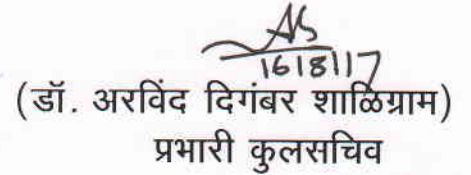 16|8|17
(डॉ. अरविंद दिगंबर शाळिग्राम)
प्रभारी कुलसचिव